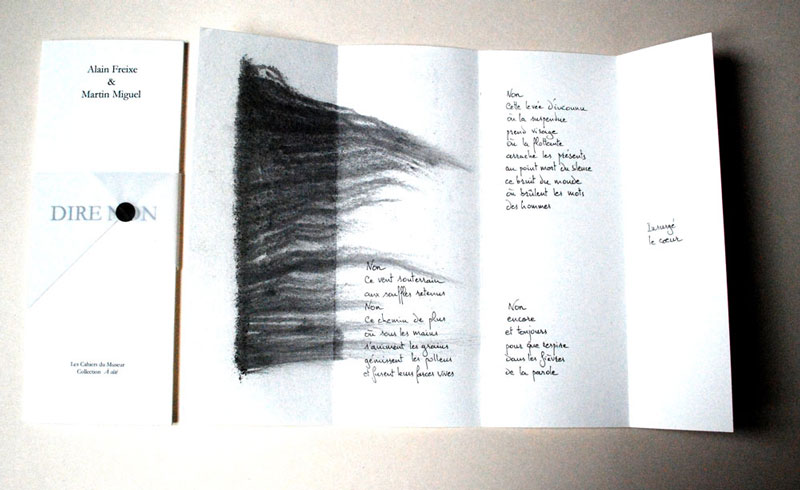 Alain Freixe
&
Martin Miguel
DIRE NON
Les Cahiers du Museur
Collection A côté
Non
Ce vent souterrain
aux souffles retenus
Non
Ce chemin de plus
où sous les mains
s'animent les grains
gémissent les pollens
et fusent leurs forces vives
Non
Cette levée d'inconnu
où la suspendue
prend visage
où la flottante
arrache les présents
au point mort du silence
ce bruit du monde
où brûlent les mots
des hommes
Non
encore
et toujours
pour que respire
dans les fièvres
de la parole
Insurgé
le cœur